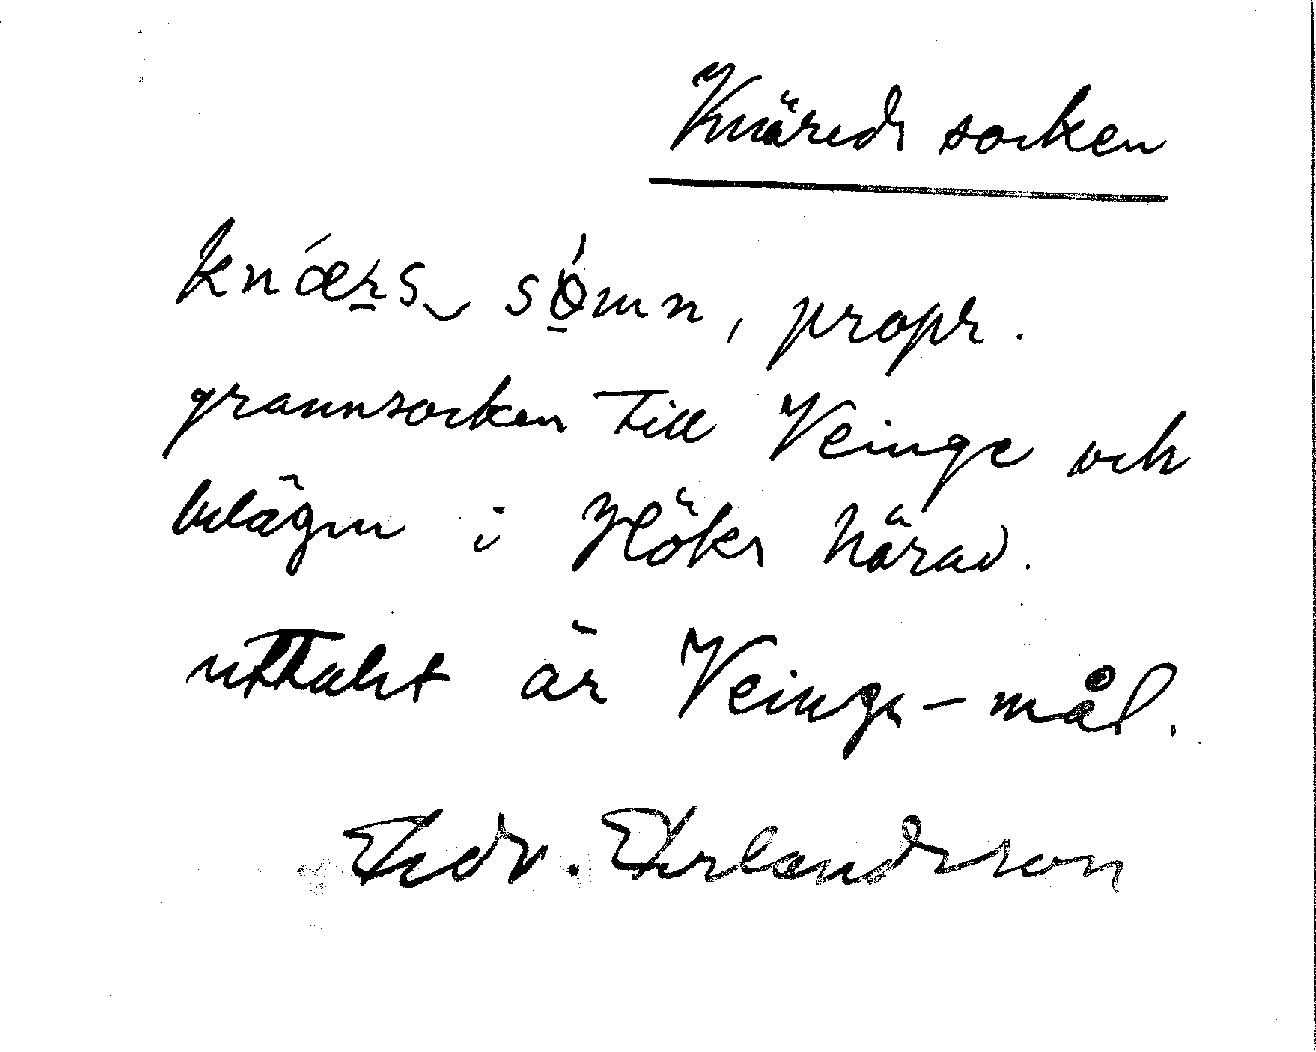 Knäreds socken
knǽrs sǿmn, propr.
grannsocken till Veinge och
belägen i Höks härad.
uttalet är Veinge-mål.
Edv. Erlandsson